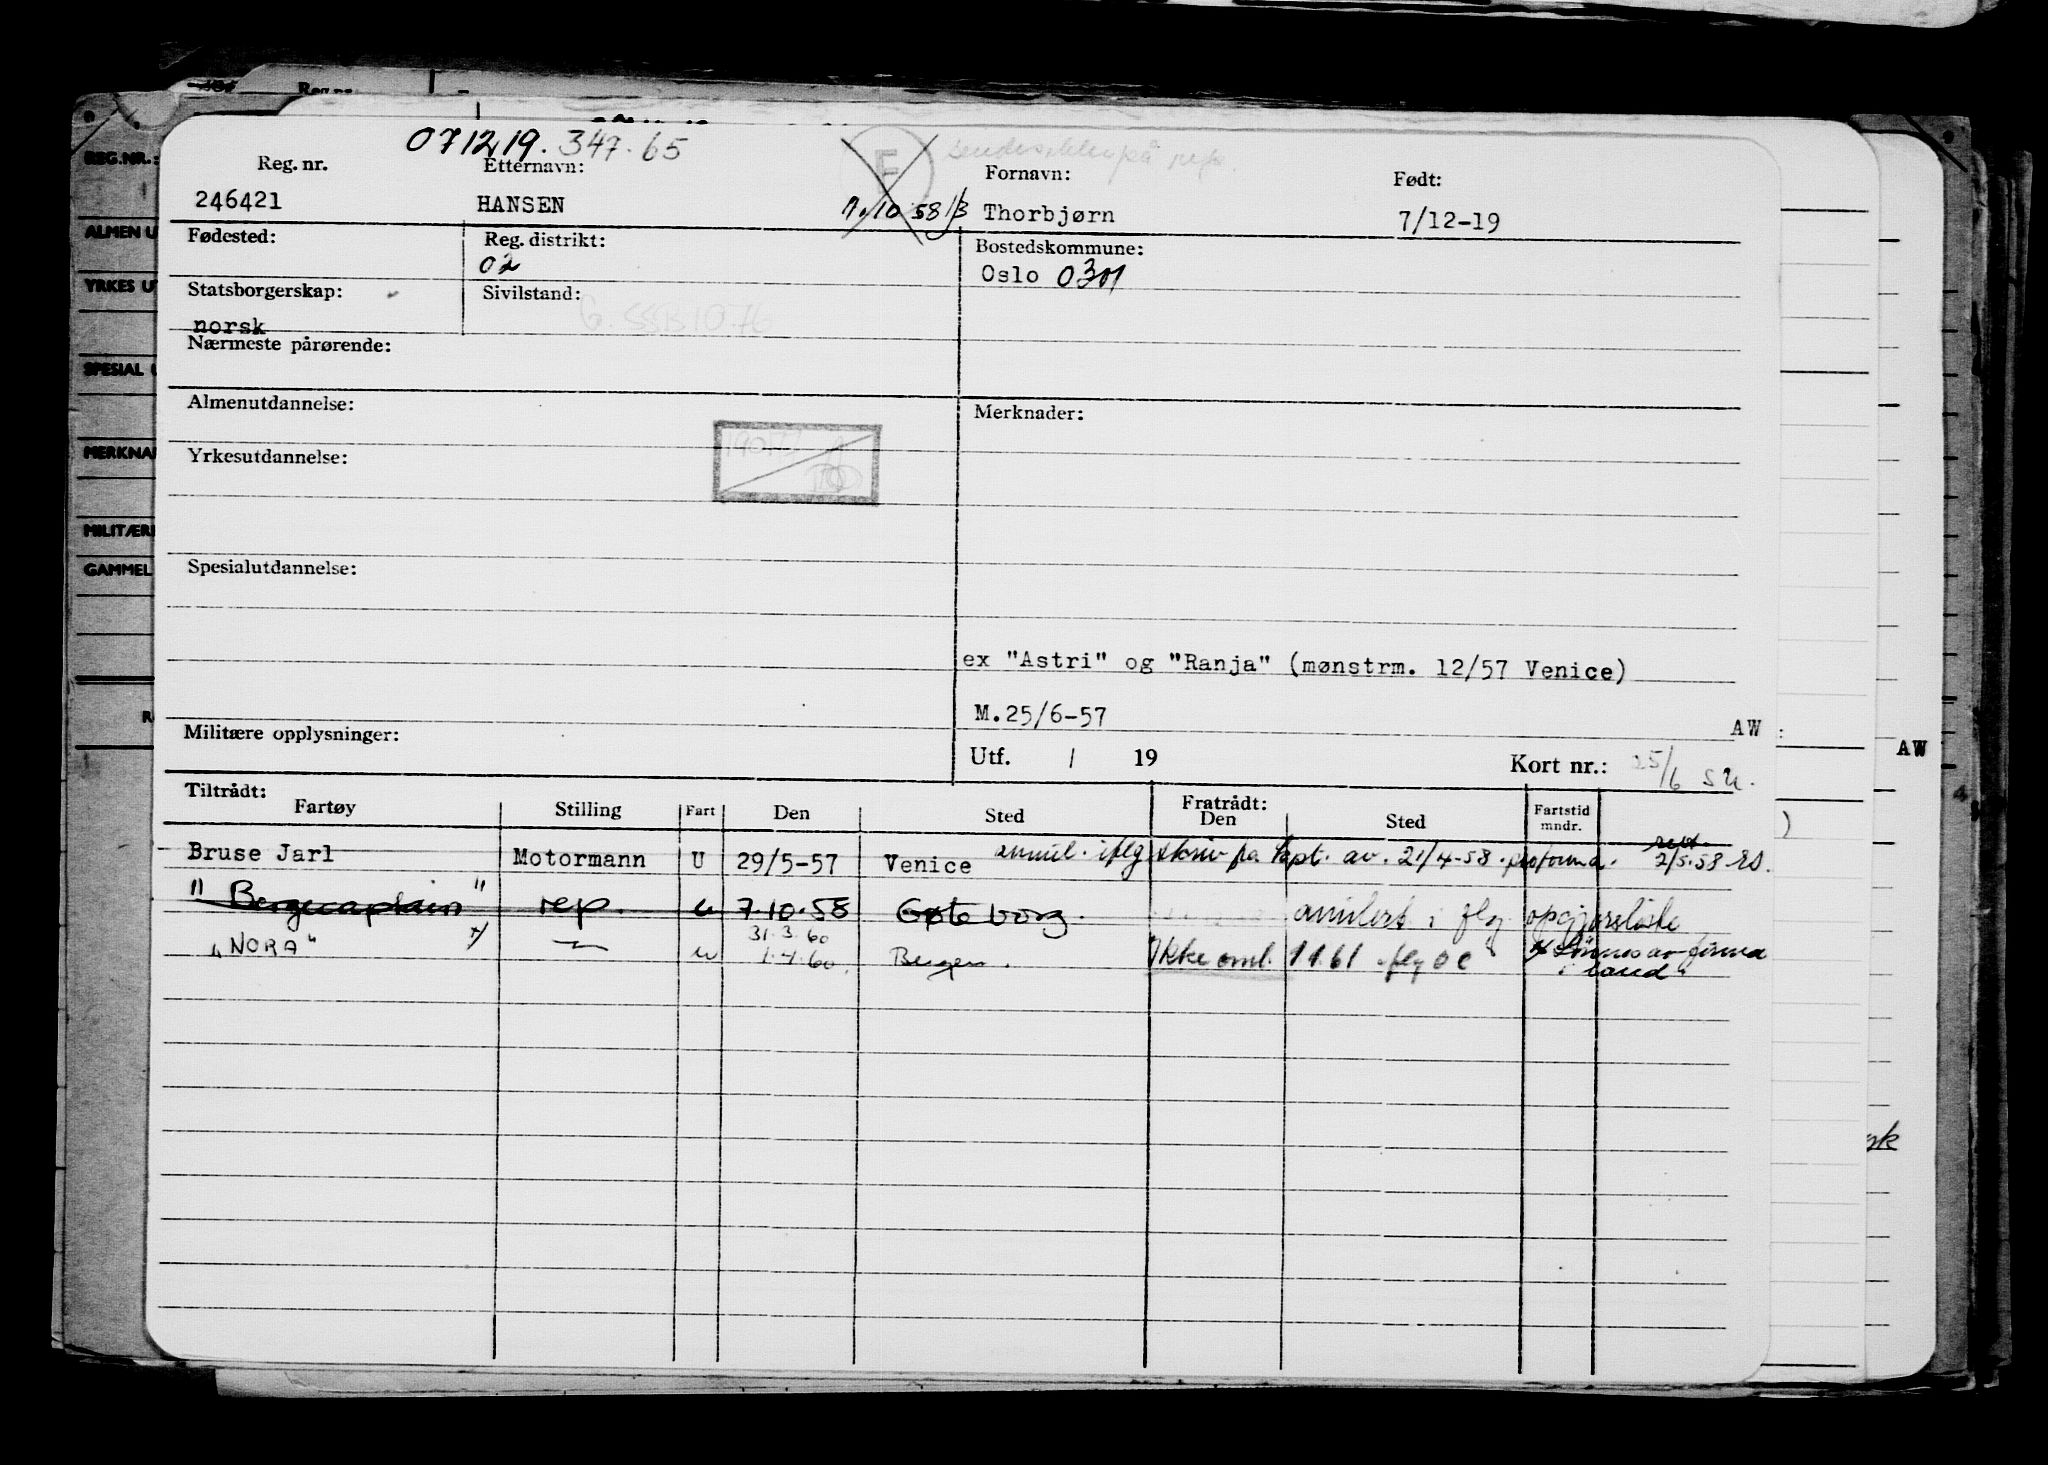 071219. 347.65
Reg. nr. Etternavn: Fornavn: Født:
246421 HANSEN 7.10 58 Thorbjørn 7/12-19
Fødested: Reg. distrikt: 02 Bostedskommune: Oslo 0301
Statsborgerskap: norsk Sivilstand:
Nærmeste pårørende:
Almenutdannelse: Merknader:
Yrkesutdannelse:
Spesialutdannelse:
ex "Astri" og "Ranja" (mønstrm. 12/57 Venice)
M.25/6-57 AW
Militære opplysninger: Utf. / 19 Kort nr.: 25/6
Tiltrådt: Fratrådt:
Fartøy Stilling Fart Den Sted Den Sted Fartstid mndr.
Bruse Jarl Motormann U 29/5-57 Venice annul. iflg skriv fra kapt. av. 21/4-58. proforma. 2/5.58
"Bergecaptain" rep. u 7.10.58 Gøteborg. annulert i flg oppgjørsliste
31.3.60
"NORA" x/ u 1.4.60 Bergen. Ikke oml. 1 1.61 iflg O C x Lønnes av firma
i land
REG.NR.:
ALMEN U
YRKES U
SPESIAL
MERKNA
MILITÆRE
GAMMEL
AW